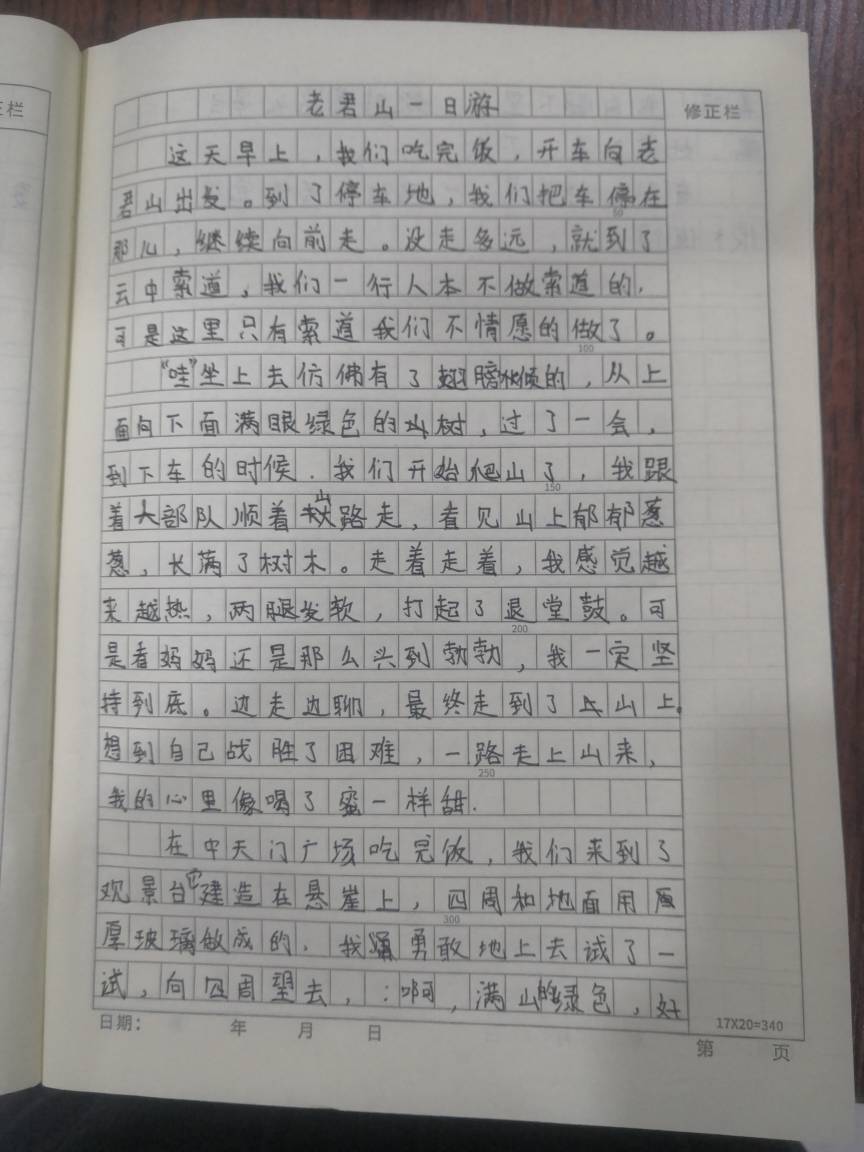 正栏
老君山一日游
修正栏
这天早上，我们吃完饭，开车向老
君山出发。到了停车地，我们把车停在
50
那儿，继续向前走。没走多远，就到了
云中索道，我们一行人本不做索道的．
可是这里只有索道我们不情愿的做了。
100
“哇”坐上去仿佛有了翅膀似的，从上
面向下面满眼绿色的树，过了一会，
到下车的时候．我们开始爬山了，我跟
150
着大部队顺着山路走，看见山上郁郁葱
葱，长满了树木。走着走着，我感觉越
来越热，两腿发软，打起了退堂鼓。可
200
是看妈妈还是那么兴到勃勃，我一定坚
持到底。边走边聊，最终走到了山上。
想到自己战胜了困难，一路走上山来，
250
我的心里像喝了蜜一样甜．
在中天门广场吃完饭，我们来到了
观景台它建造在悬崖上，四周和地面用厚
300
厚玻璃做成的．我勇敢地上去试了一
试，向四周望去，：啊，满山的绿色，好
17X20=340
日期： 年 月 日
第 页